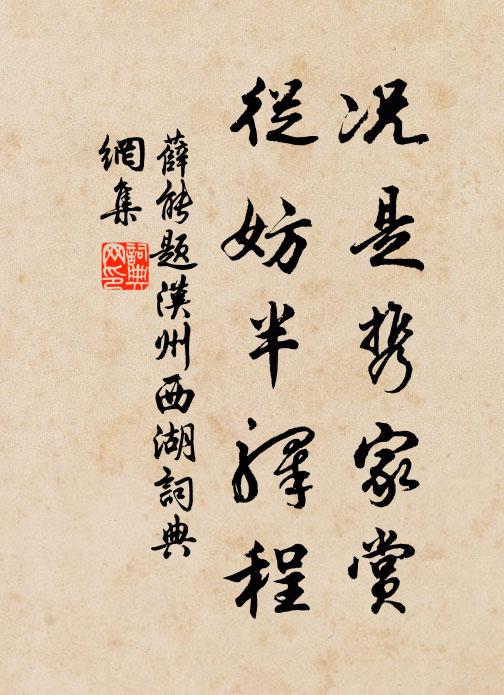 况是携家赏
從妨半驛程
薛能题漢州西湖詞典
網集
詞典
网印